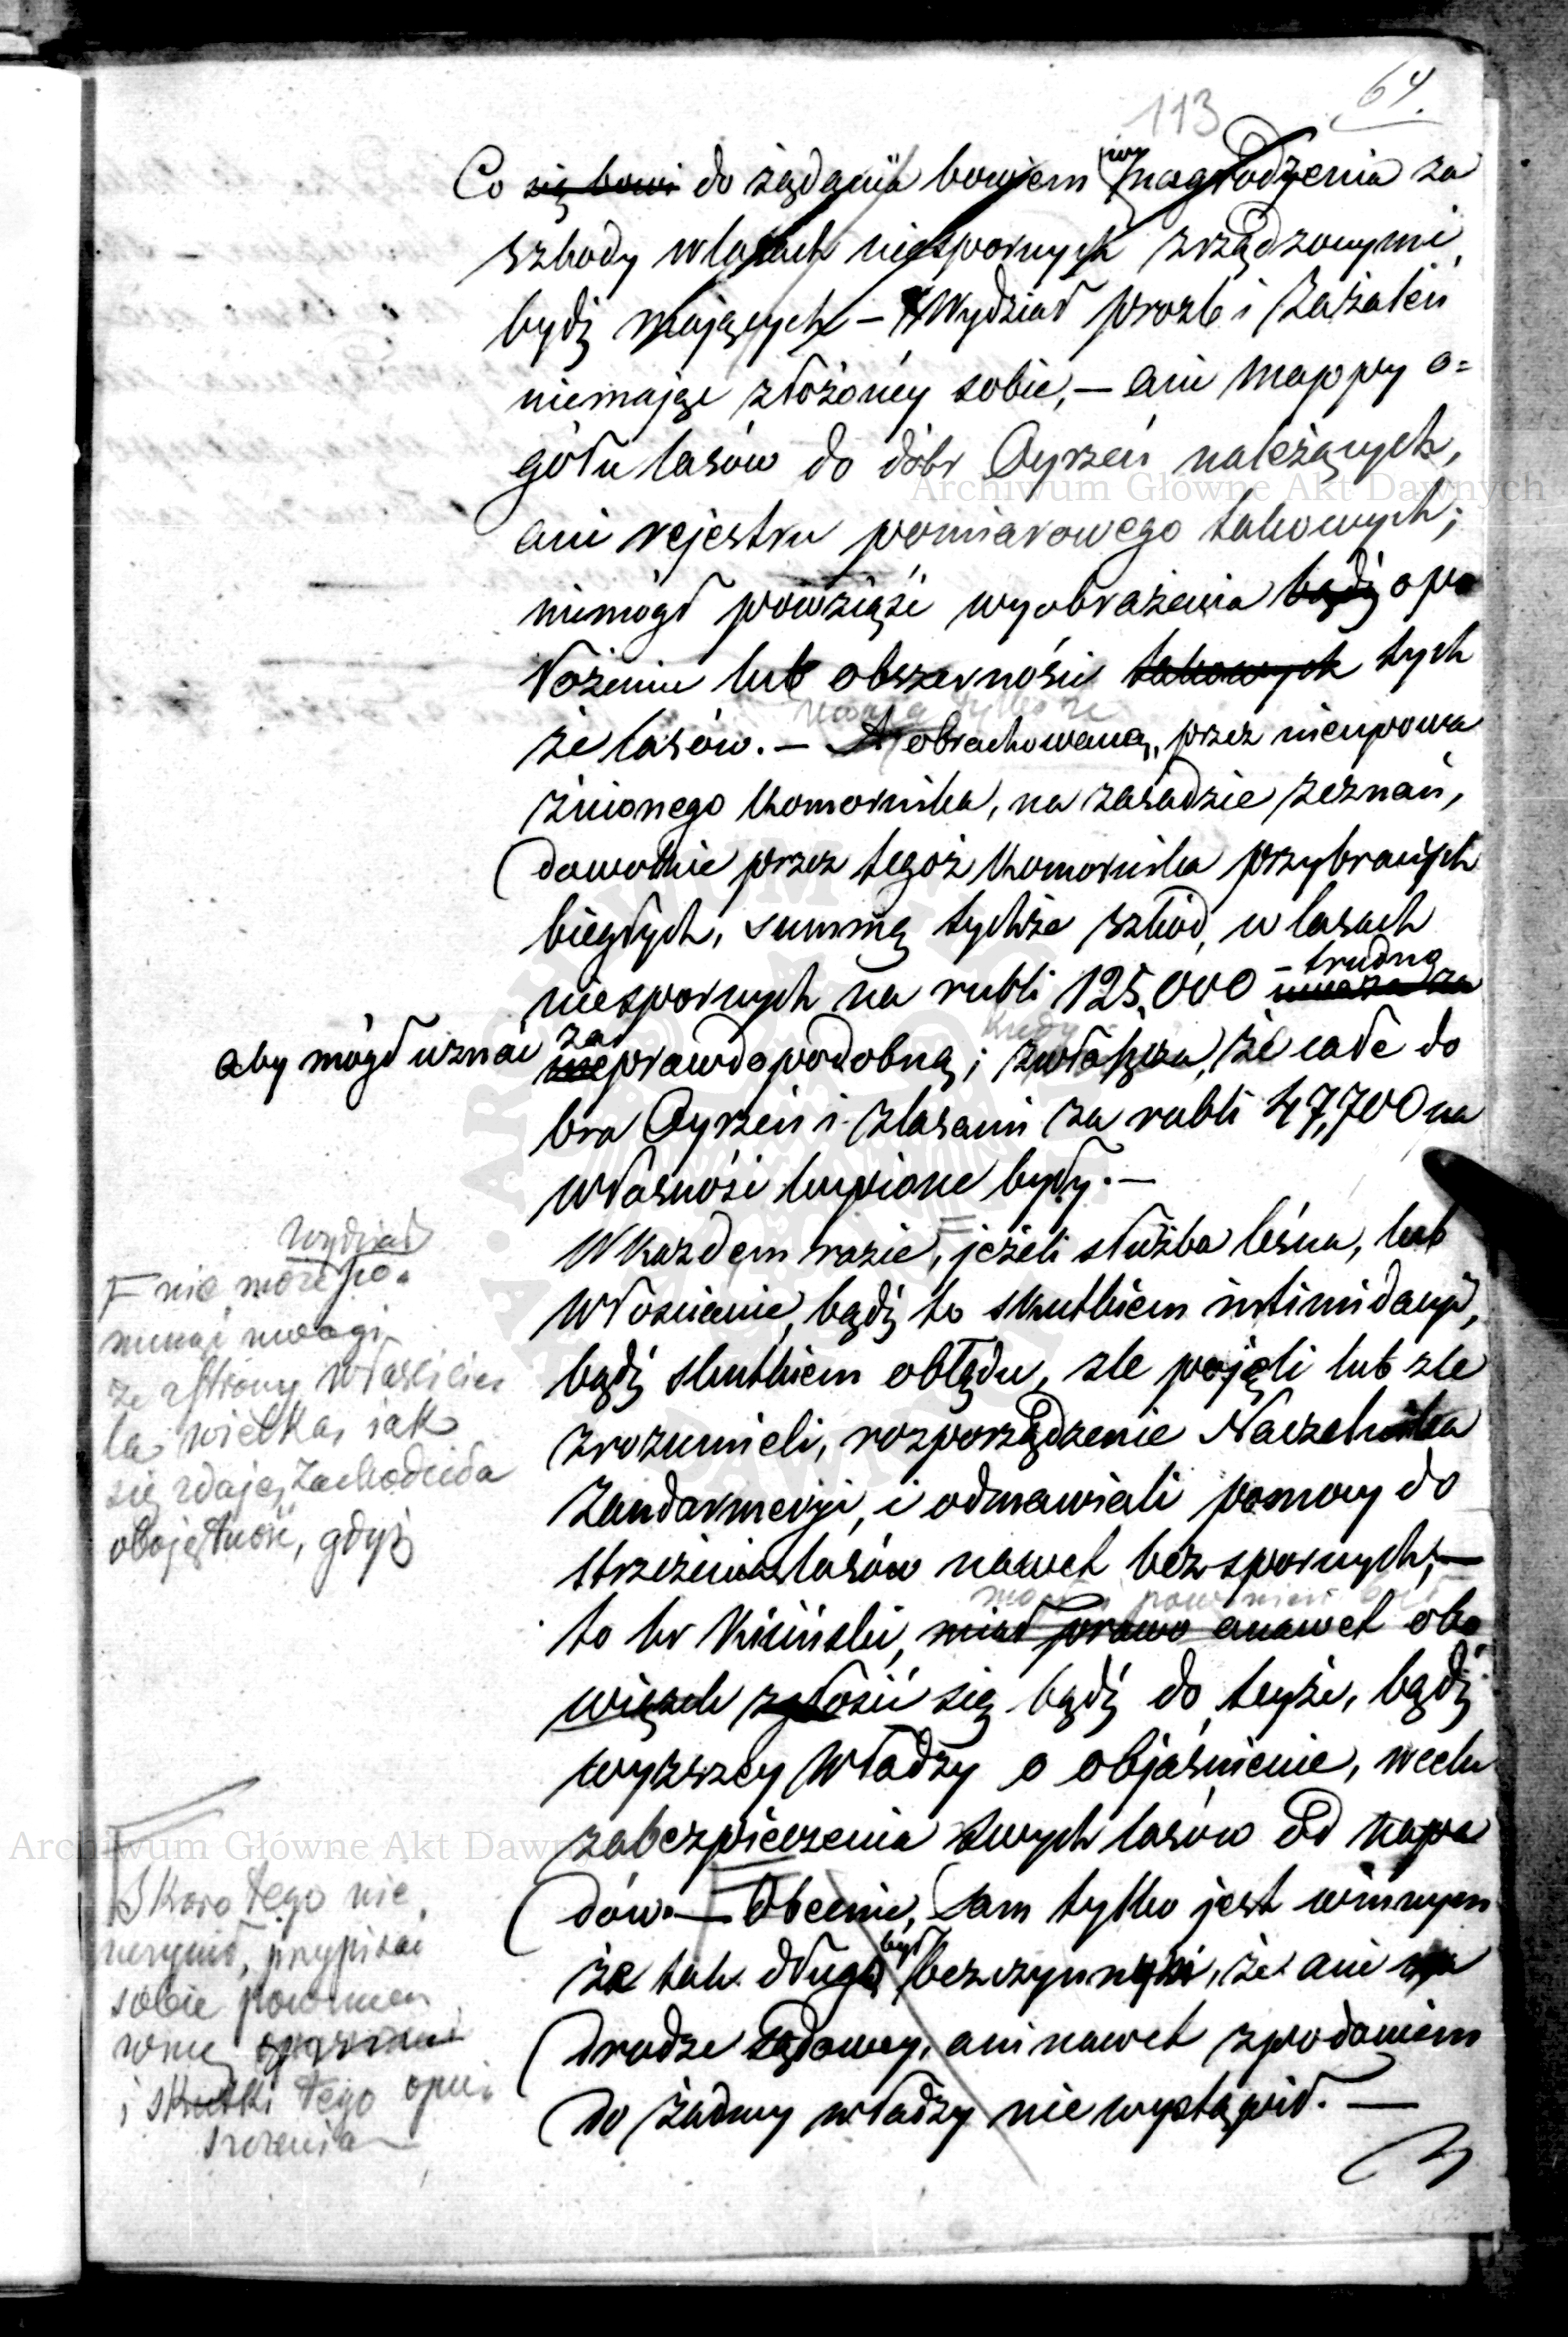 113
64.
Co się bowi do żądania bowiem wynagrodzenia za
szkody w lasach niespornych zrządzonymi
bydź mających – Wydział prozb i Zażaleń
niemając złożonéy sobie, – ani mappy o=
gółu lasów do dóbr Oyrzeń należących,
ani rejestru pomiarowego takowych;
niemógł powziąść wyobrażenia bądź o po
łożeniu lub obszerności takowych tych
że lasów. – A obrachowaną, przez nieupowa
żnionego Komornika, na zasadzie zeznań,
dowolnie przez tegoż Komornika przybranych
biegłych, summę tychże szkód, w lasach
niespornych na rubli 125,000 – trudno
aby mógł uznać za nieprawdopodobną; zwłaszcza, że całe do
bra Oyrzeń i z lasami za rubli 47,700 na
własność kupione były. –
W każdem razie, jeżeli służba leśna, lub
włościanie, bądź to skutkiem intimidacyi,
bądź skutkiem obłędu, źle pojęli lub źle
zrozumieli, rozporządzenie Naczelnika
Żandarmeryi, i odmawiali pomocy do
strzeżenia lasów nawet bezspornych; –
to hr Kiciński, miał prawo a nawet obo
wiązek zgłosić się bądź do teyże, bądź
wyższey Władzy o objaśnienie, w celu
zabezpieczenia swych lasów od napa
dów. – Obecnie, sam tylko jest winnym
że tak długo był bezczynnym, że ani na
drodze sądowey, ani nawet z podaniem
do żadney władzy nie wystąpił. –
Wydział
nie może po=
minąć uwagi
że ze strony Właścicie
la wielka, jak
się zdaje, zachodziła
obojętność, gdyż
Skoro tego nie
uczynił, przypisać
sobie powinien
winę
i skutki tego opu=
szczenia